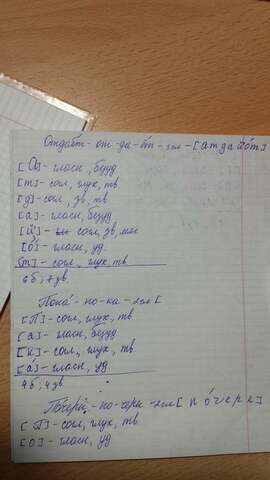 Отдаёт - от-да-ёт - 3сл - [атдай'о́т]
[а] - гласн, безуд
[т] - согл, глух, тв
[д] - согл, зв, тв
[а] - гласн, безуд
[й'] - согл, зв, мяг
[о́] - гласн, уд.
[т] - согл, глух, тв
6б; 7зв.
Пока́ - по-ка - 2сл [
[п] - согл, глух, тв
[а] - гласн, безуд
[к] - согл, глух, тв
[а́] - гласн, уд.
4б; 4зв.
- 2сл [
[п] - согл, глух, тв
[о] - гласн, уд